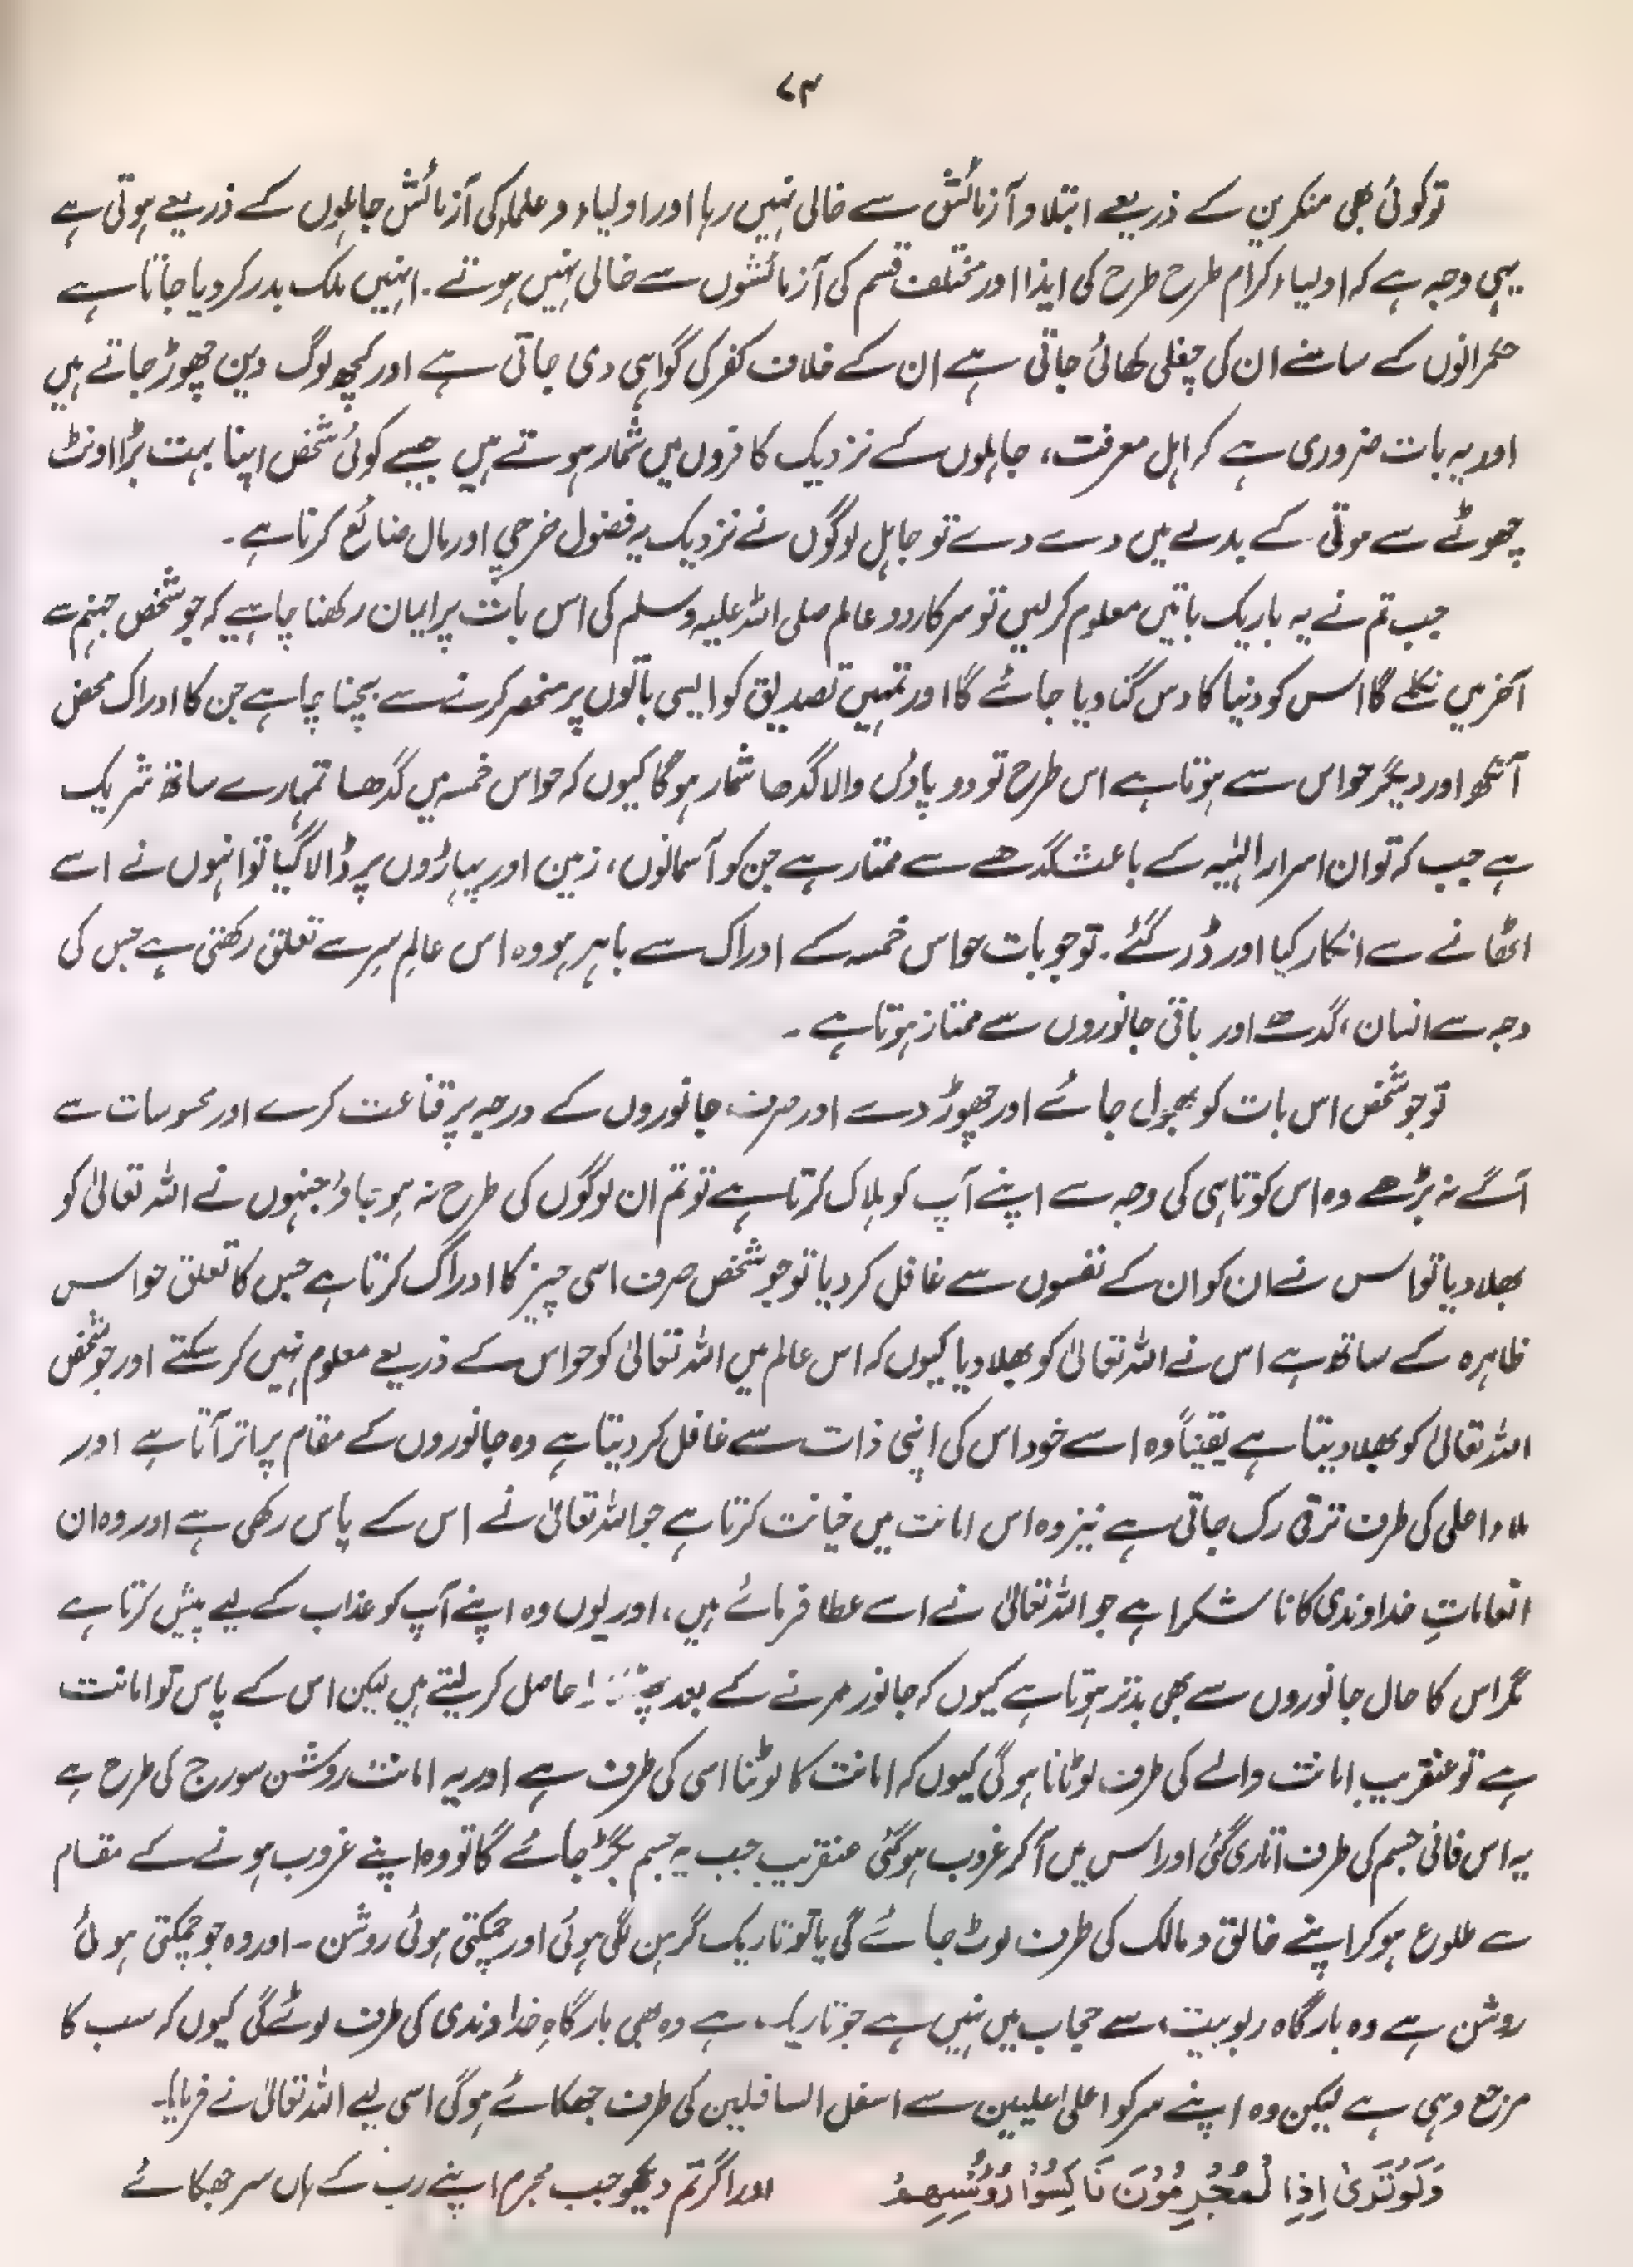 ۷۳
تو کوئی بھی منکرین کے ذریعے ابتلاء و آزمائش سے خالی نہیں رہا اور اولیاء و علماء کی آزمائش جاہلوں کے ذریعے ہوتی ہے
یہی وجہ ہے کہ اولیاء کرام طرح طرح کی ایذا اور مختلف قسم کی آزمائشوں سے خالی نہیں ہوتے ۔ انہیں ملک بدر کر دیا جاتا ہے
حکمرانوں کے سامنے ان کی چغلی کھائی جاتی ہے ان کے خلاف کفر کی گواہی دی جاتی ہے اور کچھ لوگ دین چھوڑ جاتے ہیں
اور یہ بات ضروری ہے کہ اہل معرفت، جاہلوں کے نزدیک کافروں میں شمار ہوتے ہیں جیسے کوئی شخص اپنا بہت بڑا اونٹ
چھوٹے سے موتی کے بدلے میں دے دے تو جاہل لوگوں نے نزدیک یہ فضول خرچی اور مال ضائع کرنا ہے ۔
جب تم نے یہ باریک باتیں معلوم کر لیں تو سرکار دو عالم صلی اللہ علیہ وسلم کی اس بات پر ایمان رکھنا چاہیے کہ جو شخص جہنم سے
آخر میں نکلے گا اس کو دنیا کا دس گنا دیا جائے گا اور تمہیں تصدیق کو ایسی باتوں پر منحصر کرنے سے بچنا چاہے جن کا ادراک محض
آنکھ اور دیگر حواس سے ہوتا ہے اس طرح تو دو پاؤں والا گدھا شمار ہوگا کیوں کہ حواس خمسہ میں گدھا تمہارے ساتھ شریک
ہے جب کہ تو ان اسرار الٰہیہ کے باعث گدھے سے ممتاز ہے جن کو آسمانوں، زمین اور پہاڑوں پر ڈالا گیا تو انہوں نے اسے
اٹھانے سے انکار کیا اور ڈر گئے ۔ تو جو بات حواس خمسہ کے ادراک سے باہر ہو وہ اس عالمِ سِر سے تعلق رکھتی ہے جس کی
وجہ سے انسان، گدھے اور باقی جانوروں سے ممتاز ہوتا ہے ۔
تو جو شخص اس بات کو بھول جائے اور چھوڑ دے اور صرف جانوروں کے درجہ پر قناعت کرے اور محسوسات سے
آگے نہ بڑھے وہ اس کوتاہی کی وجہ سے اپنے آپ کو ہلاک کرتا ہے تو تم ان لوگوں کی طرح نہ ہو جاؤ جنہوں نے اللہ تعالیٰ کو
بھلا دیا تو اس نے ان کو ان کے نفسوں سے غافل کر دیا تو جو شخص صرف اسی چیز کا ادراک کرتا ہے جس کا تعلق حواس
ظاہرہ کے ساتھ ہے اس نے اللہ تعالیٰ کو بھلا دیا کیوں کہ اس عالم میں اللہ تعالیٰ کو حواس کے ذریعے معلوم نہیں کر سکتے اور جو شخص
اللہ تعالیٰ کو بھلا دیتا ہے یقیناً وہ اسے خود اس کی اپنی ذات سے غافل کر دیتا ہے وہ جانوروں کے مقام پر اتر آتا ہے اور
ملاء اعلی کی طرف ترقی رک جاتی ہے نیز وہ اس امانت میں خیانت کرتا ہے جو اللہ تعالیٰ نے اس کے پاس رکھی ہے اور وہ ان
انعاماتِ خداوندی کا نا شکرا ہے جو اللہ تعالیٰ نے اسے عطا فرمائے ہیں، اور یوں وہ اپنے آپ کو عذاب کے لیے پیش کرتا ہے
مگر اس کا حال جانوروں سے بھی بدتر ہوتا ہے کیوں کہ جانور مرنے کے بعد حاصل کر لیتے ہیں لیکن اس کے پاس تو امانت
ہے تو عنقریب امانت والے کی طرف لوٹانا ہوگی کیوں کہ امانت کا لوٹنا اسی کی طرف ہے اور یہ امانت روشن سورج کی طرح ہے
یہ اس فانی جسم کی طرف اتاری گئی اور اس میں آ کر غروب ہو گئی عنقریب جب یہ جسم بگڑ جائے گا تو وہ اپنے غروب ہونے کے مقام
سے طلوع ہو کر اپنے خالق و مالک کی طرف لوٹ جائے گی یا تو تاریک گرہن لگی ہوئی اور چمکتی ہوئی روشن ۔ اور وہ جو چمکتی ہوئی
روشن ہے وہ بارگاہ ربوبیت سے حجاب میں نہیں ہے جو تاریک ہے وہ بھی بارگاہِ خداوندی کی طرف لوٹے گی کیوں کہ سب کا
مرجع وہی ہے لیکن وہ اپنے سر کو اعلیٰ علیین سے اسفل السافلین کی طرف جھکائے ہوگی اسی لیے اللہ تعالیٰ نے فرمایا۔
وَلَوْتَرٰى اِذِا لْمُجْرِمُوْنَ نَاكِسُوْا رُءُوْسِهِمْ اور اگر تم دیکھو جب مجرم اپنے رب کے ہاں سر جھکائے